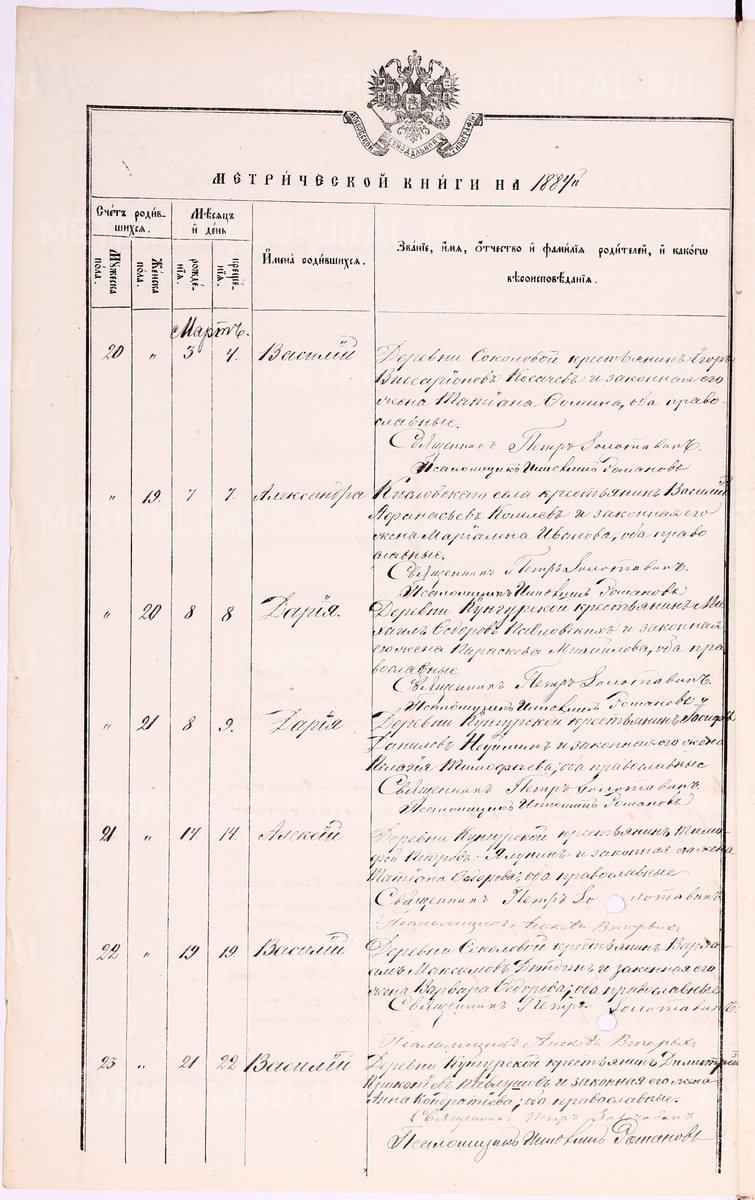 МОСКОВСКОЙ СИНОДАЛЬНОЙ ТИПОГРАФІИ
МЕТРИ́ЧЕСКОЙ КНИ́ГИ НА 1884й
Счетъ роди́в-
шихся.
Мѣсяцъ
и день
Мꙋжеска
пола.
Женска
пола.
рожде-
нія.
креще-
нія.
Имена̀ родившихся.
Званіе, имя, отчество и фамилія родителей, и какогѡ
вѣроисповѣданія.
Мартъ.
20 " 3 4. Василій
Деревни Соколовой крестьянинъ Егоръ
Виссаріоновъ Косачевъ и законная его
жена Татіана Ѳомина, оба право-
славные.
Священникъ Петръ Золотавинъ.
Псаломщикъ Романовъ
" 19. 7 7. Александра
Кисловскаго села крестьянинъ Василій
Афанасьевъ Комлевъ и законная его
жена Маріамна Иванова, оба право
славные.
Священникъ Петръ Золотавинъ.
Псаломщикъ Романовъ
" 20 8 8. Дарія.
Деревни Кунгурской крестьянинъ Ми-
хаилъ Ѳедоровъ Павловскихъ и законная
его жена Параскева Михайлова, оба пра
вославные
Священникъ Петръ Золотавинъ.
Псаломщикъ Романовъ
" 21 8 9. Дарія
Деревни Кунгурской крестьянинъ Іосифъ
Даниловъ Неуйминъ и законная его жена
Пелагія Тимофѣева, оба православные
Священникъ Петръ Золотавинъ
Псаломщикъ Романовъ
21 " 14 14. Алексѣй
Деревни Кунгурской крестьянинъ Тимо-
фей Петровъ Ялунинъ и законная его жена
Татіана Ѳедорова; оба православные
Священникъ Петръ Золотавинъ
Псаломщикъ Вторыхъ
22 " 19 19. Василій
Деревни Соколовой крестьянинъ Варла-
амъ Максимовъ и законная его
жена Варвара Ѳедорова; оба православные
Священникъ Петръ Золотавинъ
Псаломщикъ Вторыхъ
23 " 21 22 Василій
Деревни Кунгурской крестьянинъ Димитрій
Прокопіевъ и законная его жена
Анна Кондратіева; оба православные.
Священникъ Петръ Золотавинъ
Псаломщикъ Романовъ